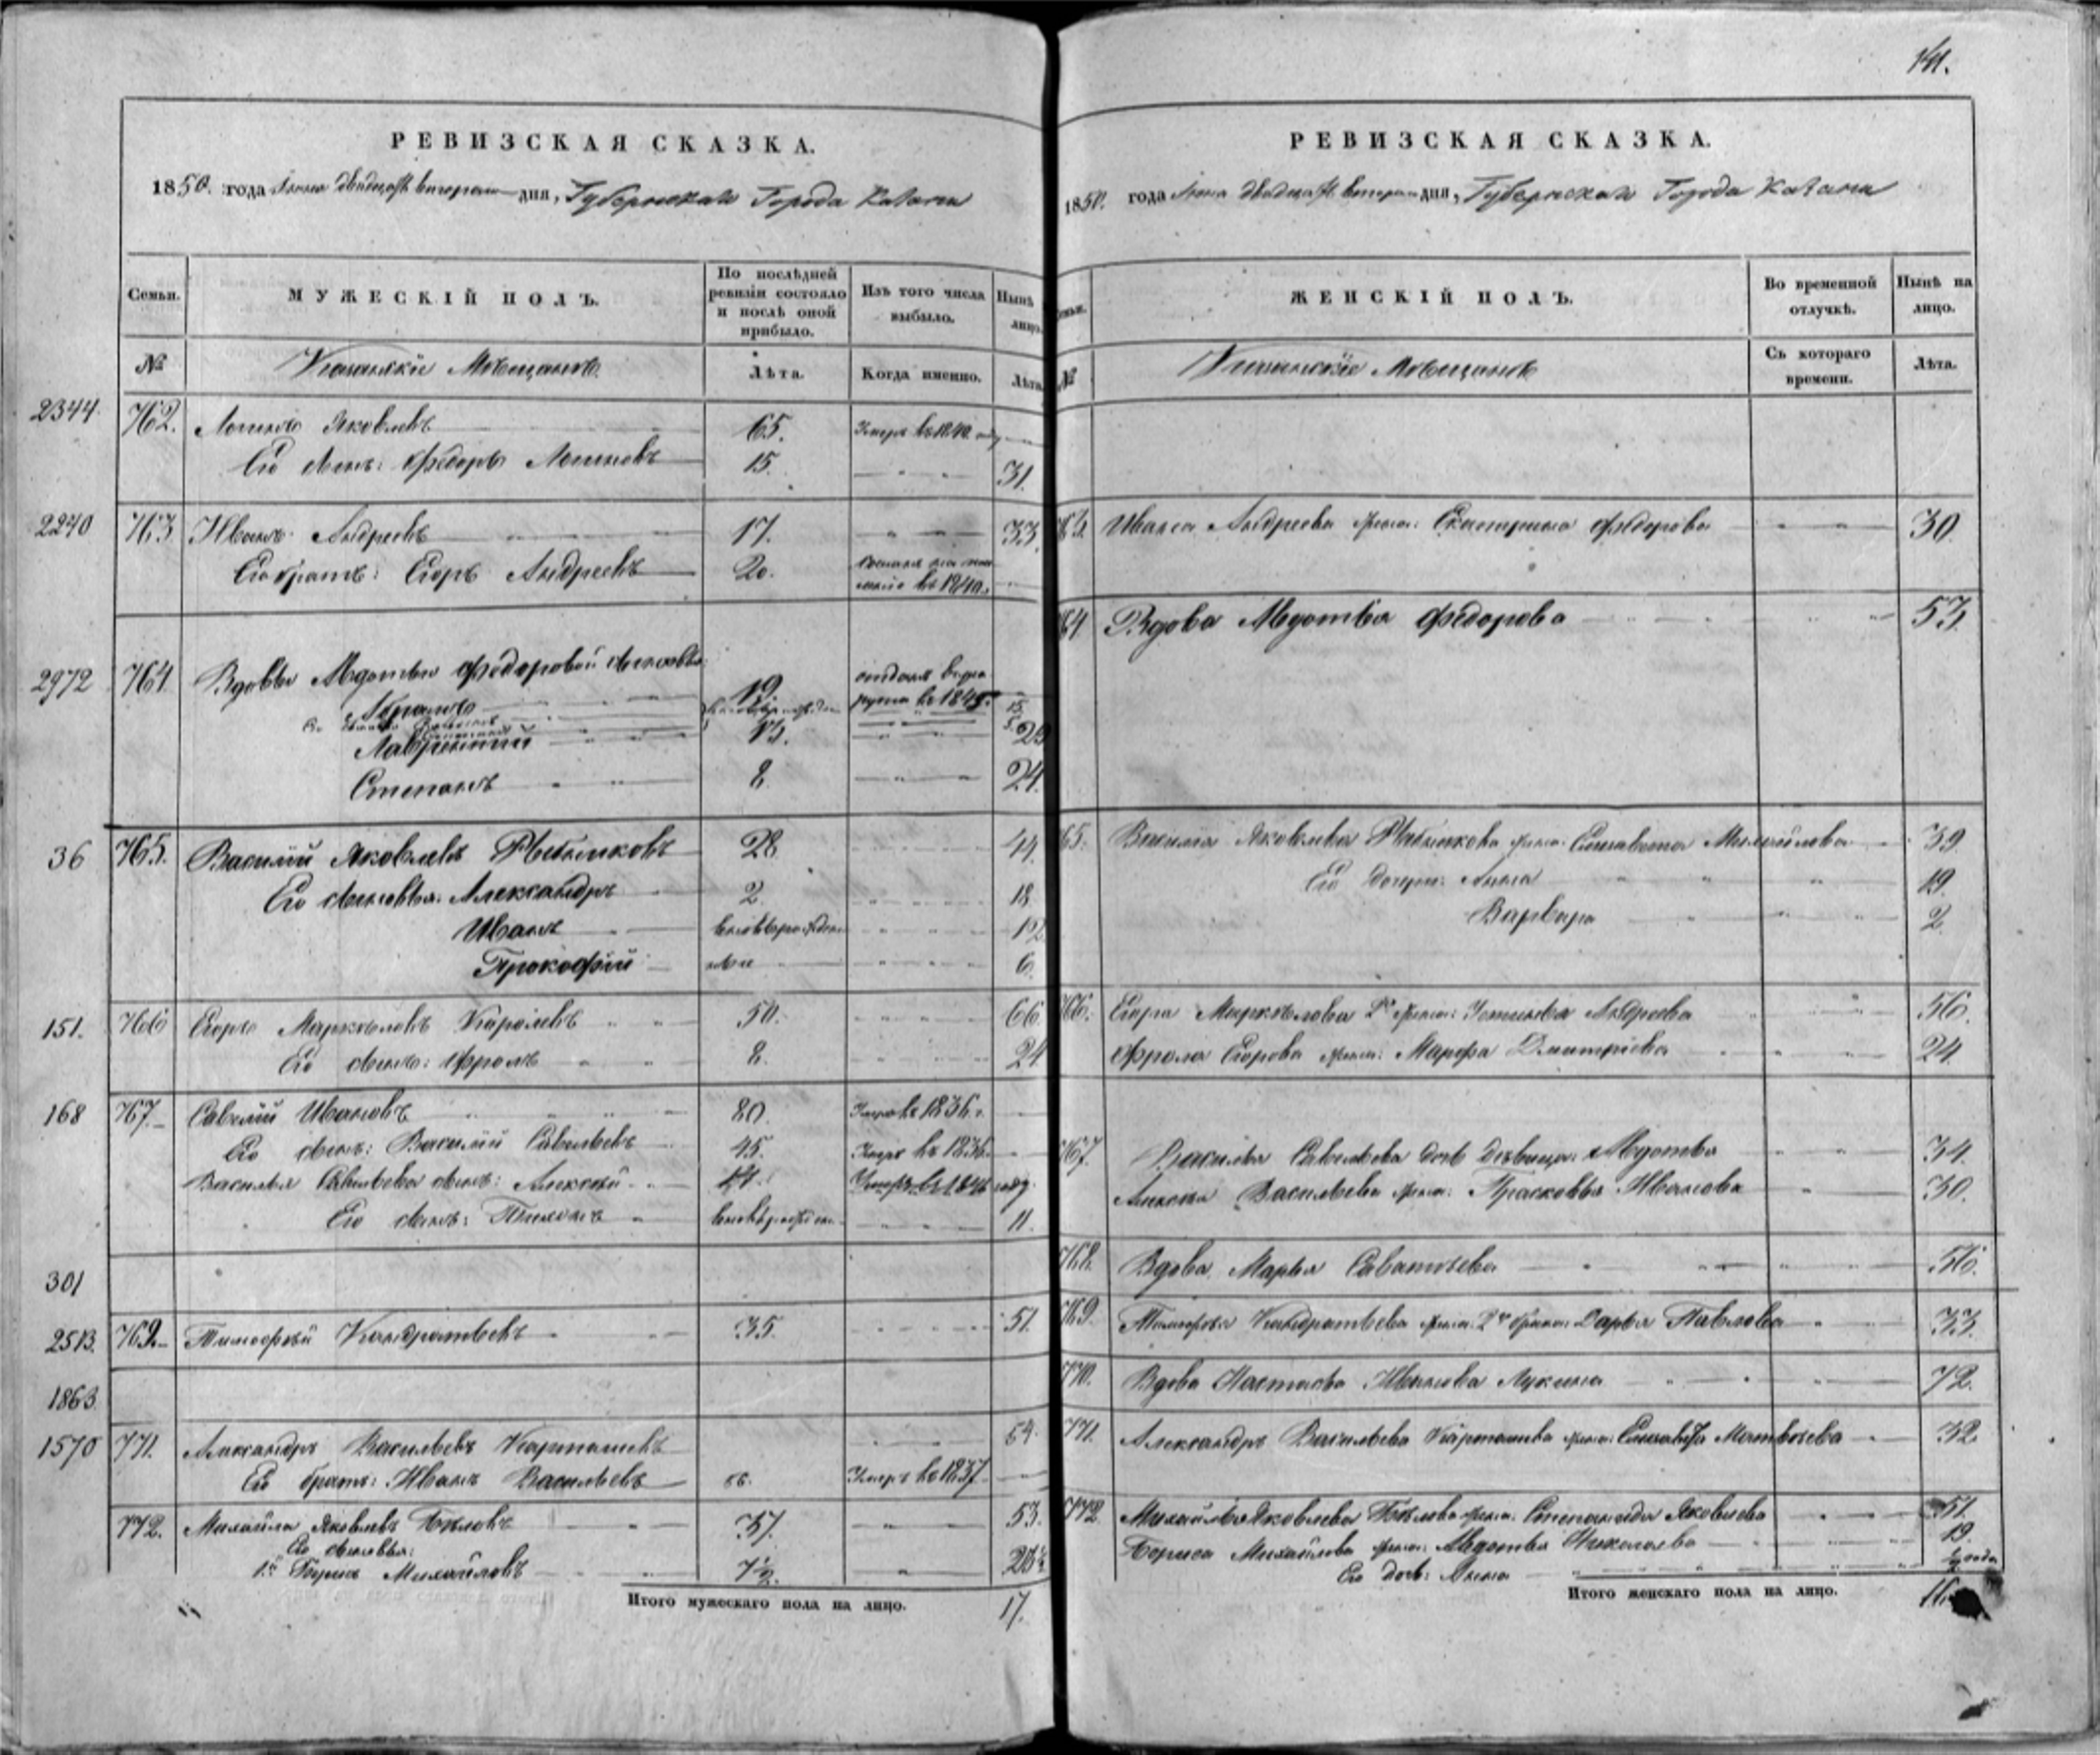 141.
РЕВИЗСКАЯ СКАЗКА.
1850. года Іюня двадцать втораго дня, Губернскаго Города Казани
Семьи.
МУЖЕСКІЙ ПОЛЪ.
По послѣдней ревизіи состояло и послѣ оной прибыло.
Изъ того числа выбыло.
Нынѣ на лицо.
№
Казанскіе Мѣщане.
Лѣта.
Когда именно.
Лѣта.
2344 762. Логинъ Яковлевъ 65. Умеръ въ 1840 году
Его сынъ: Ѳедоръ Логиновъ 15. 31.
2240 763 Иванъ Андреевъ 17. 33.
Его братъ: Егоръ Андреевъ 20. въ 1840.
2972 764 Вдовы Авдотьи Ѳедоровой сыновья: 19 отданъ въ рекруты въ 1845.
Лаврентій 13. 29
Степанъ 8 24.
36 765. Василій Яковлевъ 28 44.
Его сыновья: Александръ 2. 18
Иванъ вновь рожден 12
Прокофій 6.
151. 766 Егоръ Королевъ 50. 66
Его сынъ: Фролъ 8. 24
168 767. Савелій Ивановъ 80. Умеръ въ 1836.
Его сынъ: Василій Савельевъ 45. Умеръ въ 1836.
Василья Савельева сынъ: Алексѣй Умеръ въ 1846 году
Его сынъ: вновь рожден 11.
301
2513. 769. Тимофей Кандратьевъ 35. 51.
1863.
1570 771. Александръ Васильевъ Карташевъ 54.
Его братъ: Иванъ Васильевъ Умеръ въ 1837
772. Михайла Яковлевъ Бѣловъ 37. 53.
Его сыновья:
1й Борисъ Михайловъ 7½. 23½
Итого мужескаго пола на лицо. 17.
РЕВИЗСКАЯ СКАЗКА.
1850. года Іюня двадцать втораго дня, Губернскаго Города Казани
ЖЕНСКІЙ ПОЛЪ.
Во временной отлучкѣ.
Нынѣ на лицо.
№
Казанскіе Мѣщане
Съ котораго времени.
Лѣта.
Ивана Андреева жена: Екатерина Ѳедорова 30.
Вдова Авдотья Ѳедорова 53.
Василья Яковлева жена: Елисавета Михайлова 39
Его дочери: Анна 19.
Варвара 2.
Егора жена: Устинья Андреева 56.
Фрола Егорова жена: Марфа Дмитріева 24
767. Василья Савельева дочь девица: Авдотья 34.
Алексѣя Васильева жена: Прасковья Иванова 30.
768. Вдова Марья Саватѣева 56.
769. Тимофея Кандратьева жена: Дарья Павлова 33.
770. Вдова Настасья Иванова Лукина 72.
771. Александръ Васильева Карташева жена: Елисавета Матвѣева 32
772 Михайлы Яковлева Бѣлова жена: Степанида Яковлева 51.
Бориса Михайлова жена: Авдотья Николаева 19.
Его дочь: Анна ½ года
Итого женскаго пола на лицо. 16